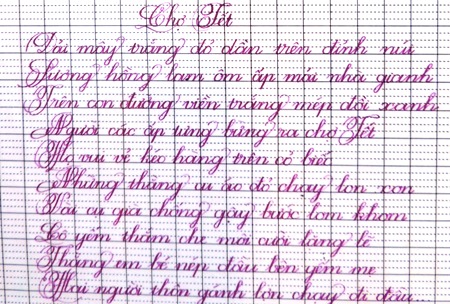 Chợ Tết
Dải mây trắng đỏ dần trên đỉnh núi
Sương hồng lam ôm ấp mái nhà gianh
Trên con đường viền trắng mép đồi xanh
Người các ấp tưng bừng ra chợ Tết
Họ vui vẻ kéo hàng trên cỏ biếc
Những thằng cu áo đỏ chạy lon xon
Vài cụ già chống gậy bước lom khom
Cô yếm thắm che môi cười lặng lẽ
Thằng em bé nép đầu bên yếm mẹ
Hai người thôn gánh lợn chạy đi đầu...